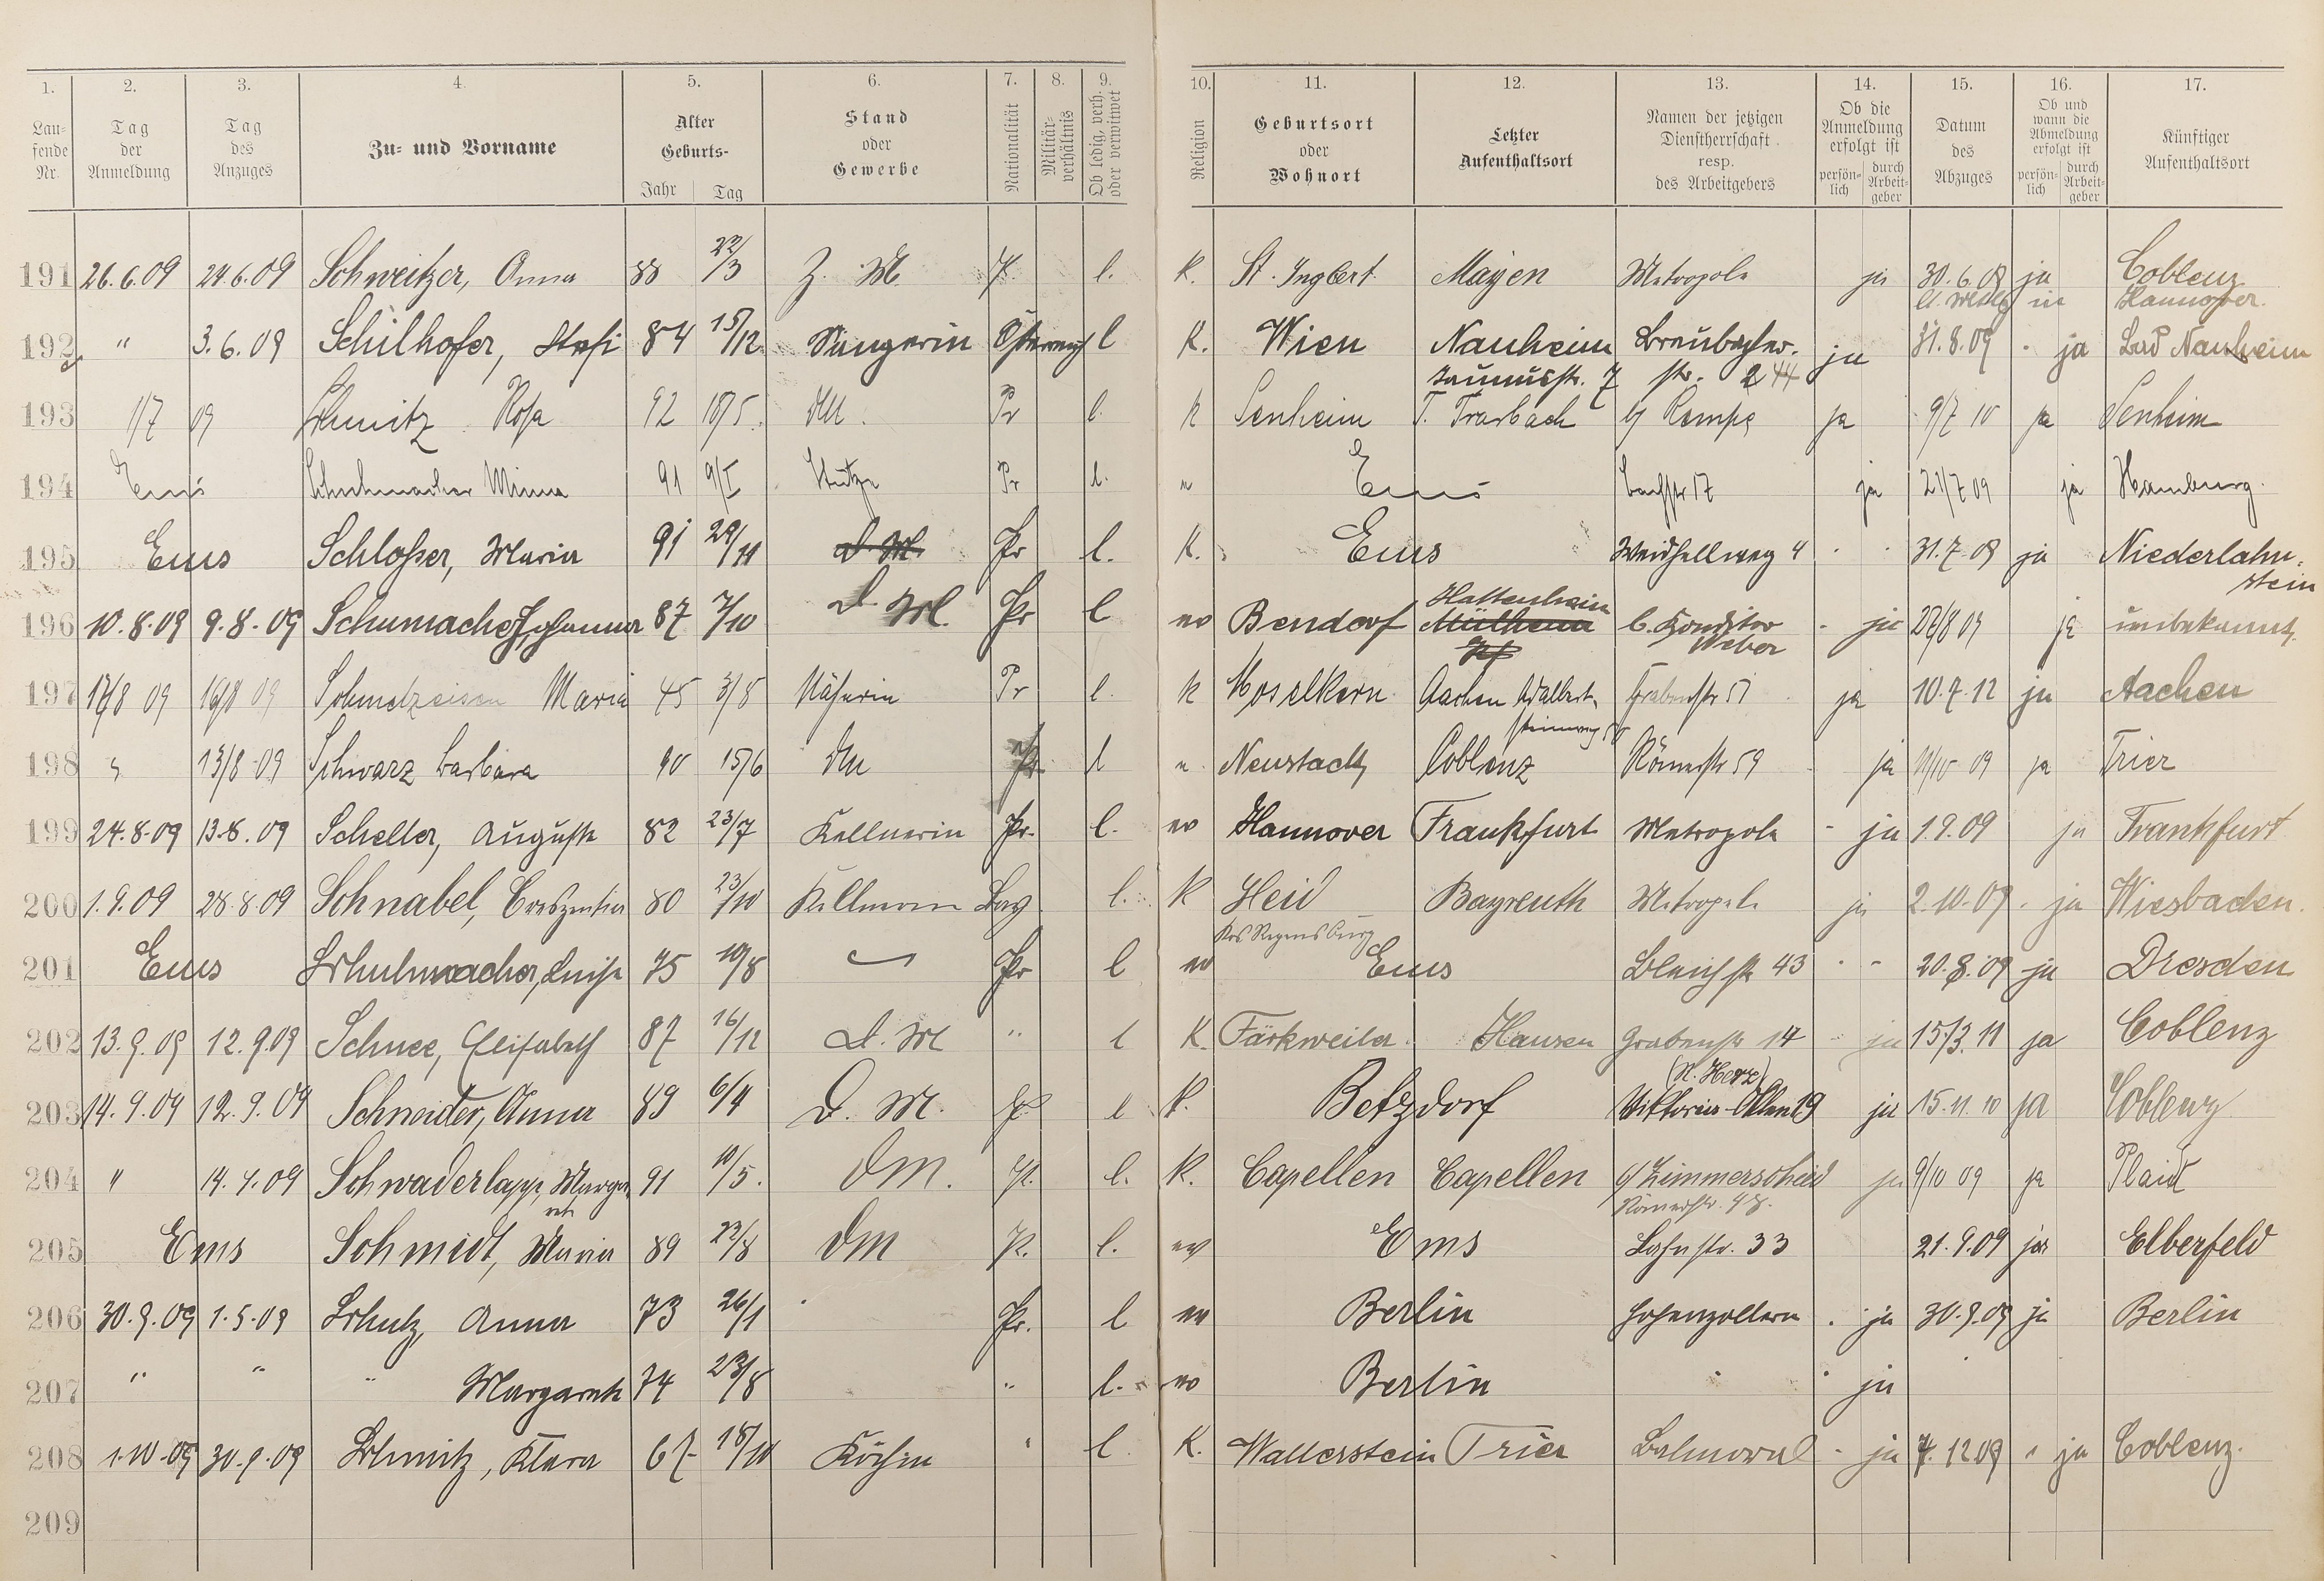 1. 2. 3. 4. 5. 6. 7. 8. 9. 10. 11. 12. 13. 14. 15. 16. 17.
Lau-
fende
Nr.
Tag
der
Anmeldung
Tag
des
Anzuges
Zu- und Vorname
Alter
Geburts-
Jahr Tag
Stand
oder
Gewerbe
Nationalität
Militär-
verhältnis
Ob ledig, verh.
oder verwitwet
Religion
Geburtsort
oder
Wohnort
Letzter
Aufenthaltsort
Namen der jetzigen
Dienstherrschaft
resp.
des Arbeitgebers
Ob die
Anmeldung
erfolgt ist
persön-
lich
durch
Arbeit-
geber
Datum
des
Abzuges
Ob und
wann die
Abmeldung
erfolgt ist
persön-
lich
durch
Arbeit-
geber
Künftiger
Aufenthaltsort
191 26.6.09 24.6.09 Schweitzer, Anna 88 22/3 Z. M. P. l. K. St. Ingbert Mayen Metropole ja 30.6.09 ja Coblenz
in Hannover.
192 " 3.6.09 Schilhofer, Stefi 84 15/12 Sängerin Österreich l K. Wien Nauheim Braubacher- ja 31.8.09 - ja Bad Nauheim
Taunusstr. 7 str. 2 44
193 1/7 09 Schmitz Rosa 92 18/5. DM. Pr l. k Senheim T. Trarbach b/ Kempe ja 9/7 10 ja Senheim
194 Ems Schuhmacher Minna 91 9/I Stütze Pr l. " Ems Bachstr 17 ja 21/7 09 ja Hamburg.
195 Ems Schlosser, Maria 91 29/11 D. M. Pr l. K. Ems Weidhellweg 4 - - 31.7.09 ja Niederlahn-
stein
196 10.8.09 9.8.09 Schumacher, Johanna 87 7/10 D. M. Pr l ev Bendorf Hattenheim
Mülheim b. Konditor - ja 27/8 09 ja unbekannt.
Weber
197 17/8 09 16/8 09 Schmelzeisen Maria 45 3/8 Näherin Pr l. k Moselkern Aachen Adalbert- Grabenstr 51 ja 10.7.12 ja Aachen
steinweg
198 " 13/8 09 Schwarz Barbara 90 15/6 DM Pr l Neustadt, Coblenz Römerstr 59 ja 11/10 09 ja Trier
199 24.8.09 13.8.09 Scheller, Auguste 82 23/7 Kellnerin Pr. l. ev Hannover Frankfurt Metropole - ja 1.9.09 ja Frankfurt
200 1.9.09 28.8.09 Schnabel, Creszentia 80 23/10 Kellnerin Bay. l. K Heid Bayreuth Metropole ja 2.10.09 - ja Wiesbaden.
Krs Regensburg
201 Ems Schuhmacher, Luise 75 10/8 Pr l ev Ems Bleichstr 43 - - 20.8.09 ja Dresden
202 13.9.09 12.9.09 Schnee, Elisabeth 87 16/12 D. M " l K. Färkweiler Hausen Grabenstr 14 - ja 15/3.11 ja Coblenz
(N. Herz)
203 14.9.09 12.9.09 Schneider, Anna 89 6/4 D. M. l K. Betzdorf Viktoria-Allee 19 ja 15.11.10 ja Coblenz
204 " 14.9.09 Schwaderlapp, Marga- 91 10/5. DM. P. l. K. Capellen Capellen b/ Zimmerscheid ja 9/10 09 ja Plaidt
rete Römerstr. 48.
205 Ems Schmidt, Maria 89 22/8 DM P. l. ev Ems Lahnstr. 33 21.9.09 ja Elberfeld
206 30.9.09 1.5.09 Schulz, Anna 73 26/1 Pr. l ev Berlin Hohenzollern - ja 30.9.09 ja Berlin
207 " " " Margarete 74 23/8 " l. ev Berlin " " ja
208 1.10.09 30.9.09 Schmitz, Klara 67 18/10 Köchin " l K. Wallerstein Trier Balmoral - ja 7.12.09 " ja Coblenz.
209